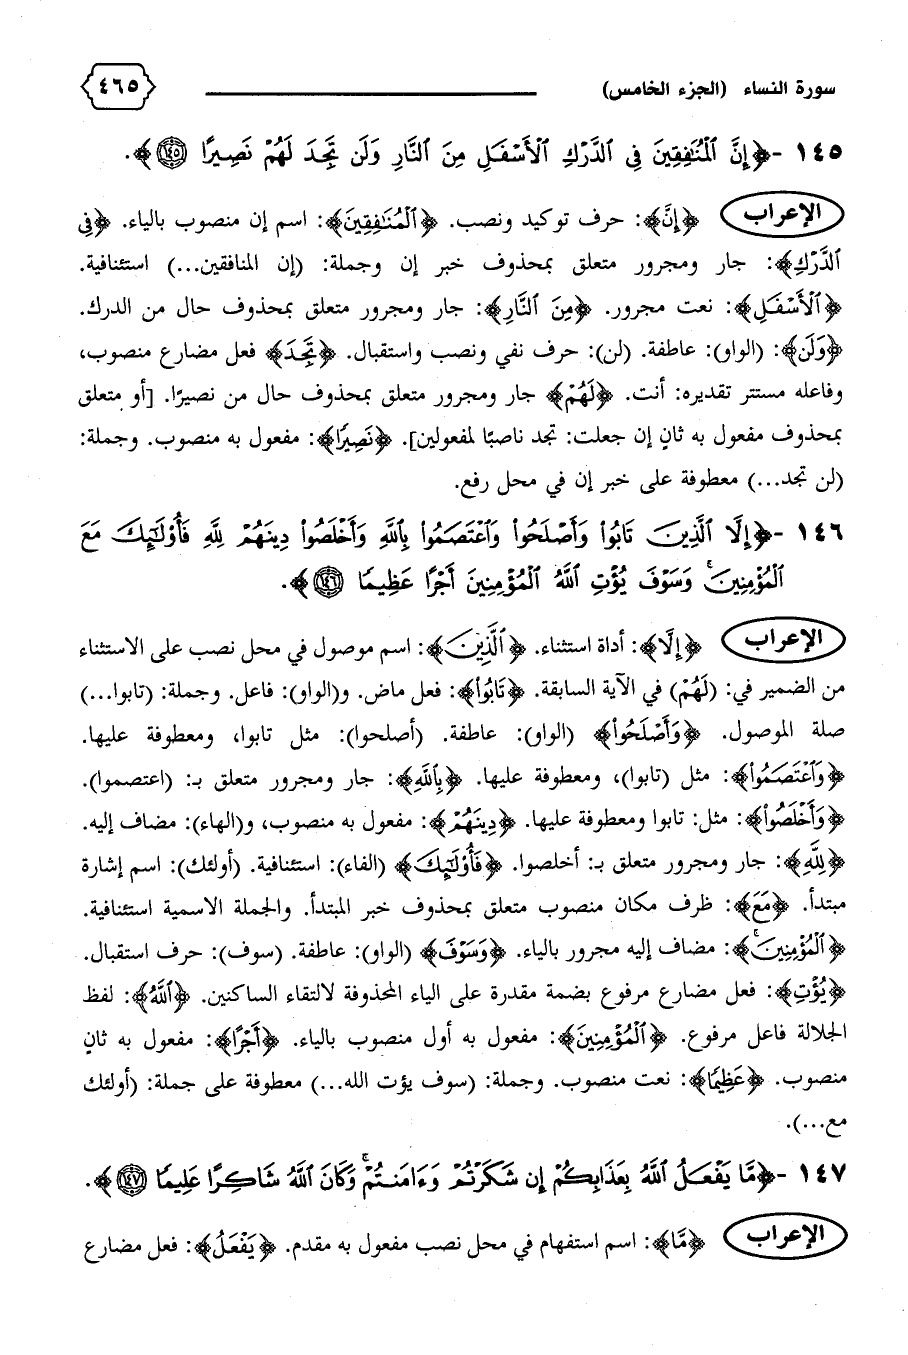 سورة النساء (الجزء الخامس) ٤٦٥
١٤٥ -﴿إِنَّ ٱلْمُنَٰفِقِينَ فِى ٱلدَّرْكِ ٱلْأَسْفَلِ مِنَ ٱلنَّارِ وَلَن تَجِدَ لَهُمْ نَصِيرًا ١٤٥﴾.
الإعراب ﴿إِنَّ﴾: حرف توكيد ونصب. ﴿ٱلْمُنَٰفِقِينَ﴾: اسم إن منصوب بالياء. ﴿فِى
ٱلدَّرْكِ﴾: جار ومجرور متعلق بمحذوف خبر إن وجملة: (إن المنافقين...) استئنافية.
﴿ٱلْأَسْفَلِ﴾: نعت مجرور. ﴿مِنَ ٱلنَّارِ﴾: جار ومجرور متعلق بمحذوف حال من الدرك.
﴿وَلَن﴾: (الواو): عاطفة. (لن): حرف نفي ونصب واستقبال. ﴿تَجِدَ﴾ فعل مضارع منصوب،
وفاعله مستتر تقديره: أنت. ﴿لَهُمْ﴾ جار ومجرور متعلق بمحذوف حال من نصيرًا. [أو متعلق
بمحذوف مفعول به ثانٍ إن جعلت: تجد ناصبًا لمفعولين]. ﴿نَصِيرًا﴾: مفعول به منصوب. وجملة:
(لن تجد...) معطوفة على خبر إن في محل رفع.
١٤٦ -﴿إِلَّا ٱلَّذِينَ تَابُوا۟ وَأَصْلَحُوا۟ وَٱعْتَصَمُوا۟ بِٱللَّهِ وَأَخْلَصُوا۟ دِينَهُمْ لِلَّهِ فَأُو۟لَٰٓئِكَ مَعَ
ٱلْمُؤْمِنِينَ ۖ وَسَوْفَ يُؤْتِ ٱللَّهُ ٱلْمُؤْمِنِينَ أَجْرًا عَظِيمًا ١٤٦﴾.
الإعراب ﴿إِلَّا﴾: أداة استثناء. ﴿ٱلَّذِينَ﴾: اسم موصول في محل نصب على الاستثناء
من الضمير في: (لَهُمْ) في الآية السابقة. ﴿تَابُوا۟﴾: فعل ماض. و(الواو): فاعل. وجملة: (تابوا...)
صلة الموصول. ﴿وَأَصْلَحُوا۟﴾ (الواو): عاطفة. (أصلحوا): مثل تابوا، ومعطوفة عليها.
﴿وَٱعْتَصَمُوا۟﴾: مثل (تابوا)، ومعطوفة عليها. ﴿بِٱللَّهِ﴾: جار ومجرور متعلق بـ: (اعتصموا).
﴿وَأَخْلَصُوا۟﴾: مثل: تابوا ومعطوفة عليها. ﴿دِينَهُمْ﴾: مفعول به منصوب، و(الهاء): مضاف إليه.
﴿لِلَّهِ﴾: جار ومجرور متعلق بـ: أخلصوا. ﴿فَأُو۟لَٰٓئِكَ﴾ (الفاء): استئنافية. (أولئك): اسم إشارة
مبتدأ. ﴿مَعَ﴾: ظرف مكان منصوب متعلق بمحذوف خبر المبتدأ. والجملة الاسمية استئنافية.
﴿ٱلْمُؤْمِنِينَ ۖ﴾: مضاف إليه مجرور بالياء. ﴿وَسَوْفَ﴾ (الواو): عاطفة. (سوف): حرف استقبال.
﴿يُؤْتِ﴾: فعل مضارع مرفوع بضمة مقدرة على الياء المحذوفة لالتقاء الساكنين. ﴿ٱللَّهُ﴾: لفظ
الجلالة فاعل مرفوع. ﴿ٱلْمُؤْمِنِينَ﴾: مفعول به أول منصوب بالياء. ﴿أَجْرًا﴾: مفعول به ثانٍ
منصوب. ﴿عَظِيمًا﴾: نعت منصوب. وجملة: (سوف يؤت الله...) معطوفة على جملة: (أولئك
مع...).
١٤٧ -﴿مَّا يَفْعَلُ ٱللَّهُ بِعَذَابِكُمْ إِن شَكَرْتُمْ وَءَامَنتُمْ ۚ وَكَانَ ٱللَّهُ شَاكِرًا عَلِيمًا ١٤٧﴾.
الإعراب ﴿مَّا﴾: اسم استفهام في محل نصب مفعول به مقدم. ﴿يَفْعَلُ﴾: فعل مضارع